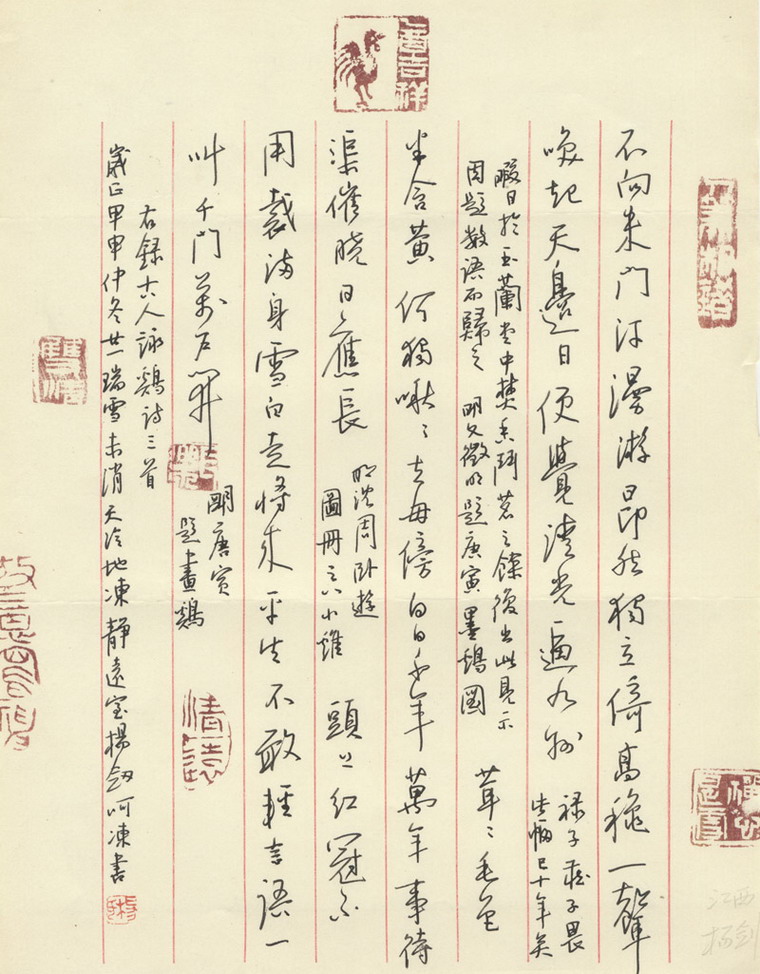 不向朱門汗漫游昂然獨立倚高穐一聲
喚起天邊日便覺清光遍九州
子畏
此幅已十年矣
暇日於玉蘭堂中焚香鬥茗之餘復出此見示
因題數語而歸之 明文徵明題唐寅墨鷄圖
茸〻毛色
半含黃何獨啾〻去母傍白日千年萬年事待
渠催曉日應長
明沈周卧遊
圖冊之八小雞
頭上紅冠不
用裁滿身雪白走將來平生不敢輕言語一
叫千門萬戶開
明唐寅
題畫鷄
右錄古人詠鷄詩三首
歲在甲申仲冬廿一瑞雪未消天冷地凍靜遠室楊劍呵凍書
吉祥
雙清
清遠
江西
杨剑